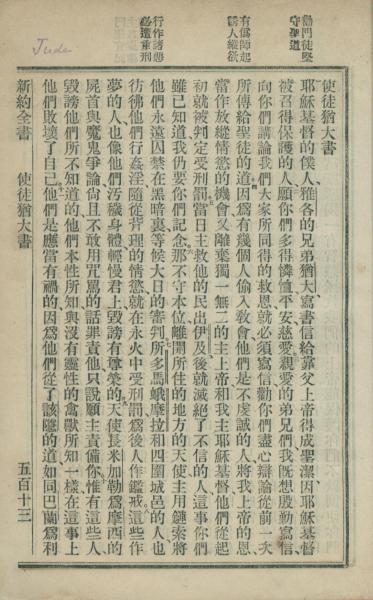 勸門徒堅
守聖道
有僞師起
誘人縱欲
行作諸惡
必遭重刑
Jude
使徒猶大書
耶穌基督的僕人雅各的兄弟猶大寫書信給靠父上帝得成聖潔因耶穌基督
被召得保護的人願你們多得憐恤平安慈愛親愛的弟兄們我旣想殷勤寫信
向你們講論我們大家所同得的救恩就必須寫信勸你們盡心辯論從前一次
所傳給聖徒的道因爲有幾個人偷入敎會他們是不虔誠的人將我上帝的恩
當作放縱情慾的機會又離棄獨一無二的主上帝和我主耶穌基督他們從起
初就被判定受刑罰當日主救他的民出伊及後就滅絕了不信的人這事你們
雖已知道我仍要你們記念那不守本位離開所住的地方的天使主用鏈索將
他們永遠囚禁在黑暗裏等候大日的審判所多馬蛾摩拉和四圍城邑的人也
彷彿他們行姦淫隨從背理的情慾就在永火中受刑罰爲後人作鑑戒這些作
夢的人也像他們汚穢身體輕慢君上毀謗有尊榮的天使長米加勒爲摩西的
屍首與魔鬼爭論尙且不敢用咒罵的話罪責他只說願主責備你惟有這些人
毀謗他們所不知道的他們本性所知與沒有靈性的禽獸所知一樣在這事上
他們敗壞了自己他們是應當有禍的因爲他們從了該隱的道如同巴蘭爲利
新約全書 使徒猶大書 五百十三